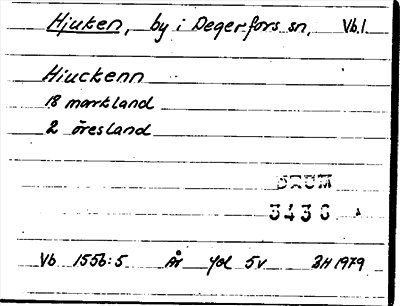 Hjuken, by i Degerfors sn, Vb.l.
Hiuckenn
18 markland
2 öresland
DAUM
3436
Vb 1556:5 År fol 5v BH 1979